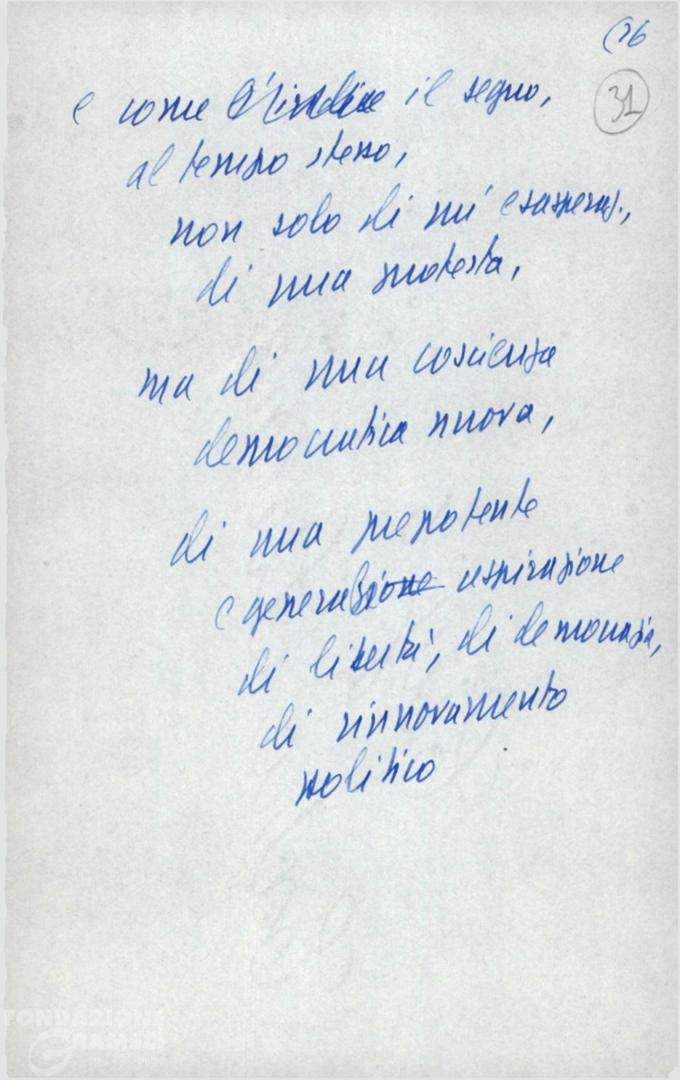 (26
31
e come il segno,
al tempo stesso,
non solo di un' esasperaz.,
di una protesta,
ma di una coscienza
democratica nuova,
di una prepotente
e generale aspirazione
di libertà, di democrazia,
di rinnovamento
politico
FONDAZIONE
GRAMSCI